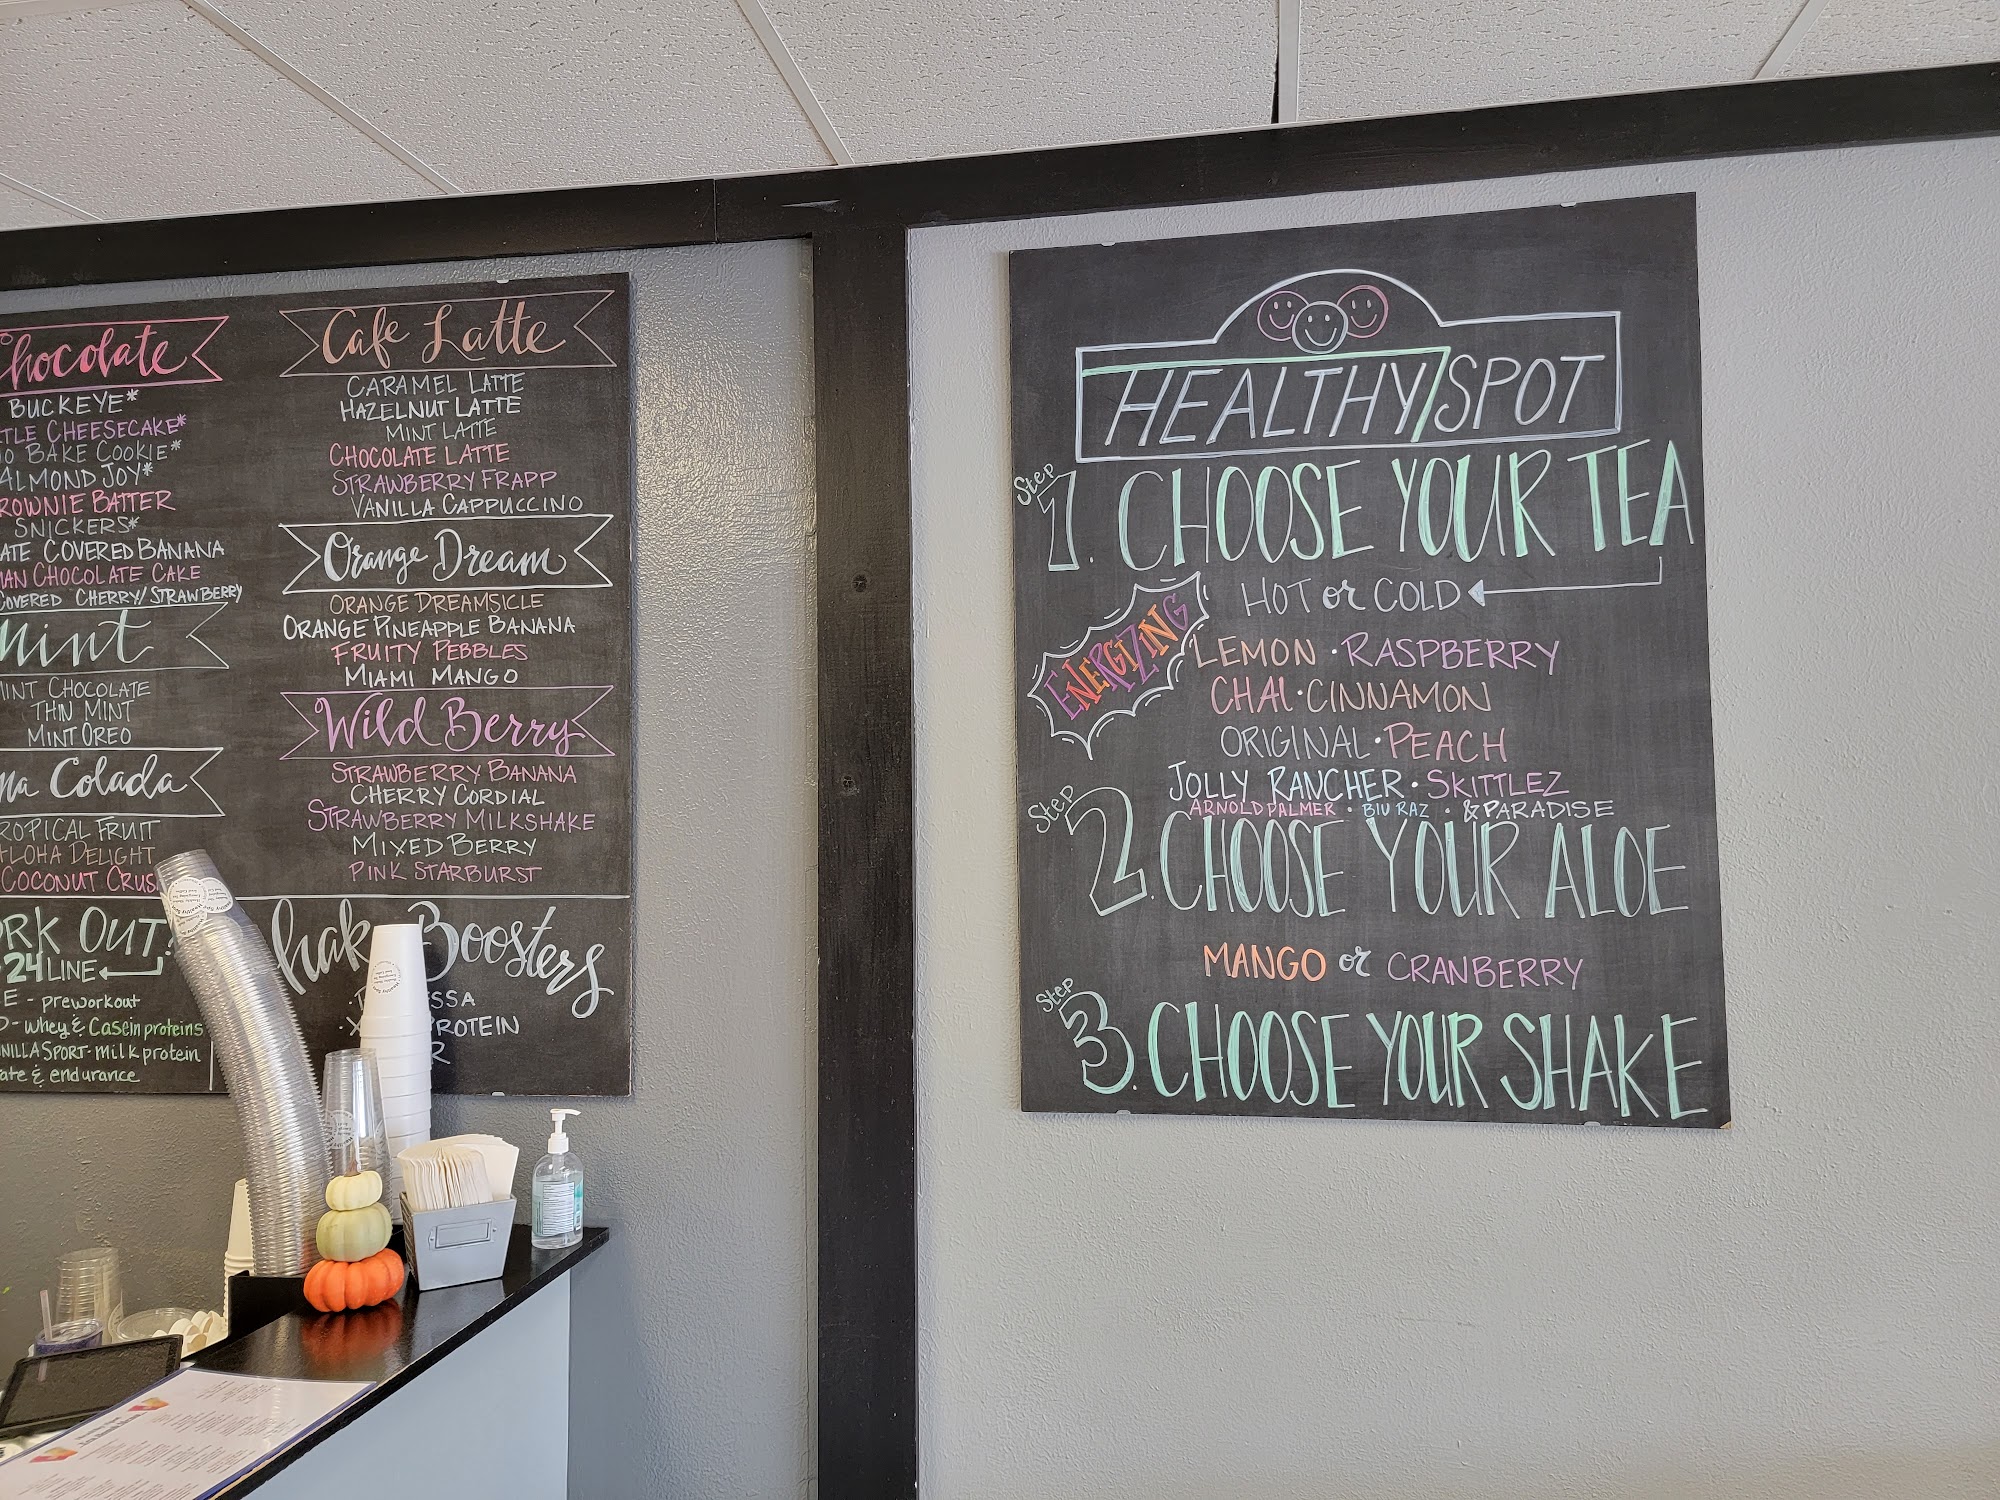 Chocolate
BUCKEYE*
CHEESECAKE*
BAKE COOKIE*
ALMOND JOY*
BROWNIE BATTER
SNICKERS*
COVERED BANANA
CHOCOLATE CAKE
COVERED CHERRY/STRAWBERRY
Mint
MINT CHOCOLATE
THIN MINT
MINT OREO
Colada
TROPICAL FRUIT
DELIGHT
COCONUT
OUT?
24 LINE
- preworkout
- whey & Casein proteins
SPORT - milk protein
& endurance
Cafe Latte
CARAMEL LATTE
HAZELNUT LATTE
MINT LATTE
CHOCOLATE LATTE
STRAWBERRY FRAPP
VANILLA CAPPUCCINO
Orange Dream
ORANGE DREAMSICLE
ORANGE PINEAPPLE BANANA
FRUITY PEBBLES
MIAMI MANGO
Wild Berry
STRAWBERRY BANANA
CHERRY CORDIAL
STRAWBERRY MILKSHAKE
MIXED BERRY
PINK STARBURST
Shake Boosters
PROTEIN
HEALTHY SPOT
Step 1. CHOOSE YOUR TEA
HOT or COLD
ENERGIZING
LEMON · RASPBERRY
CHAI · CINNAMON
ORIGINAL · PEACH
JOLLY RANCHER · SKITTLEZ
ARNOLD PALMER · BLU RAZ · & PARADISE
Step 2. CHOOSE YOUR ALOE
MANGO or CRANBERRY
Step 3. CHOOSE YOUR SHAKE